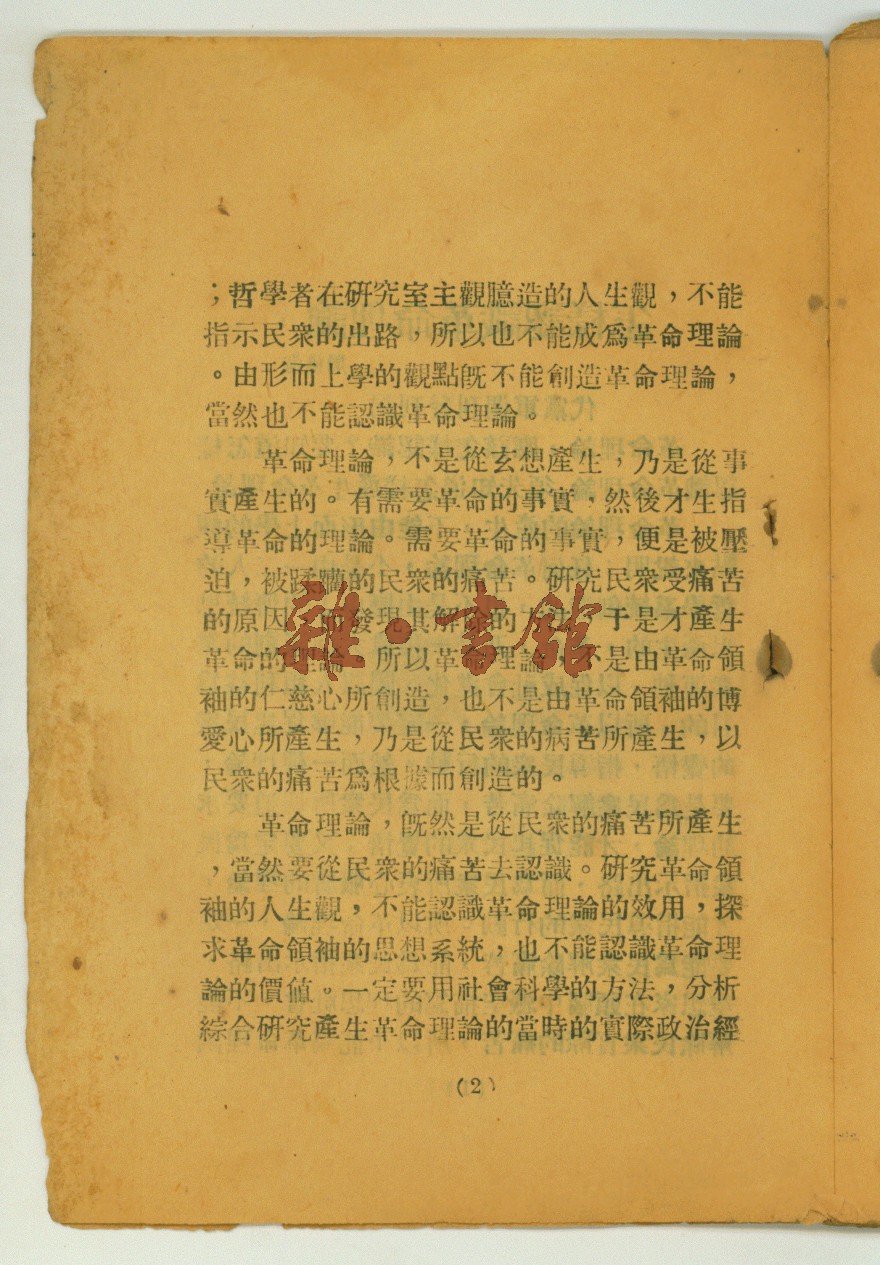 ；哲學者在研究室主觀臆造的人生觀，不能
指示民衆的出路，所以也不能成爲革命理論
。由形而上學的觀點旣不能創造革命理論，
當然也不能認識革命理論。
革命理論，不是從玄想產生，乃是從事
實產生的。有需要革命的事實，然後才生指
導革命的理論。需要革命的事實，便是被壓
迫，被蹂躪的民衆的痛苦。研究民衆受痛苦
的原因，而發現其解除的方法，于是才產生
革命的理論　所以革命理論，不是由革命領
袖的仁慈心所創造，也不是由革命領袖的博
愛心所產生，乃是從民衆的病苦所產生，以
民衆的痛苦爲根據而創造的。
革命理論，旣然是從民衆的痛苦所產生
，當然要從民衆的痛苦去認識。研究革命領
袖的人生觀，不能認識革命理論的效用，探
求革命領袖的思想系統，也不能認識革命理
論的價値。一定要用社會科學的方法，分析
綜合研究產生革命理論的當時的實際政治經
（2）
雜·書館